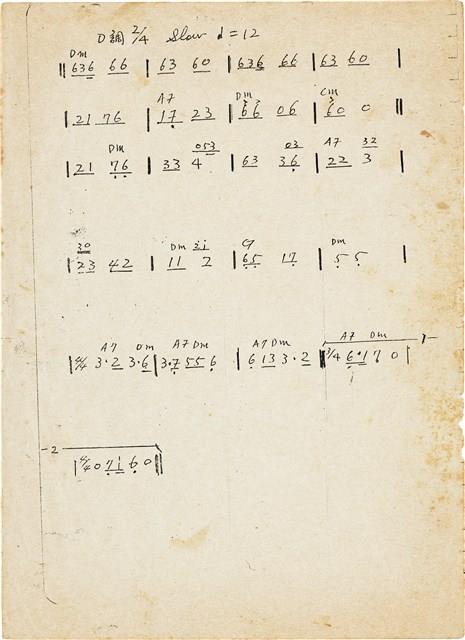 D調 2/4 Slow d=12
Dm
‖636 66 | 63 60 | 636 66 | 63 60 |
A7 Dm Cm
|21 76 | 17 23 | 66 06 | 60 0 ‖
Dm 053 03 A7 32
|21 76 | 33 4 | 63 36 | 22 3 |
30 Dm 21 Dm
|23 42 | 11 2 | 65 17 | 55 |
A7 Dm A7 Dm A7 Dm A7 Dm 1-
|4/4 3·2 3·6 | 3·7 55 6 | 6 13 3·2 ‖3/4 6·17 0 |
-2
|4/4 0 71 6 0 ‖